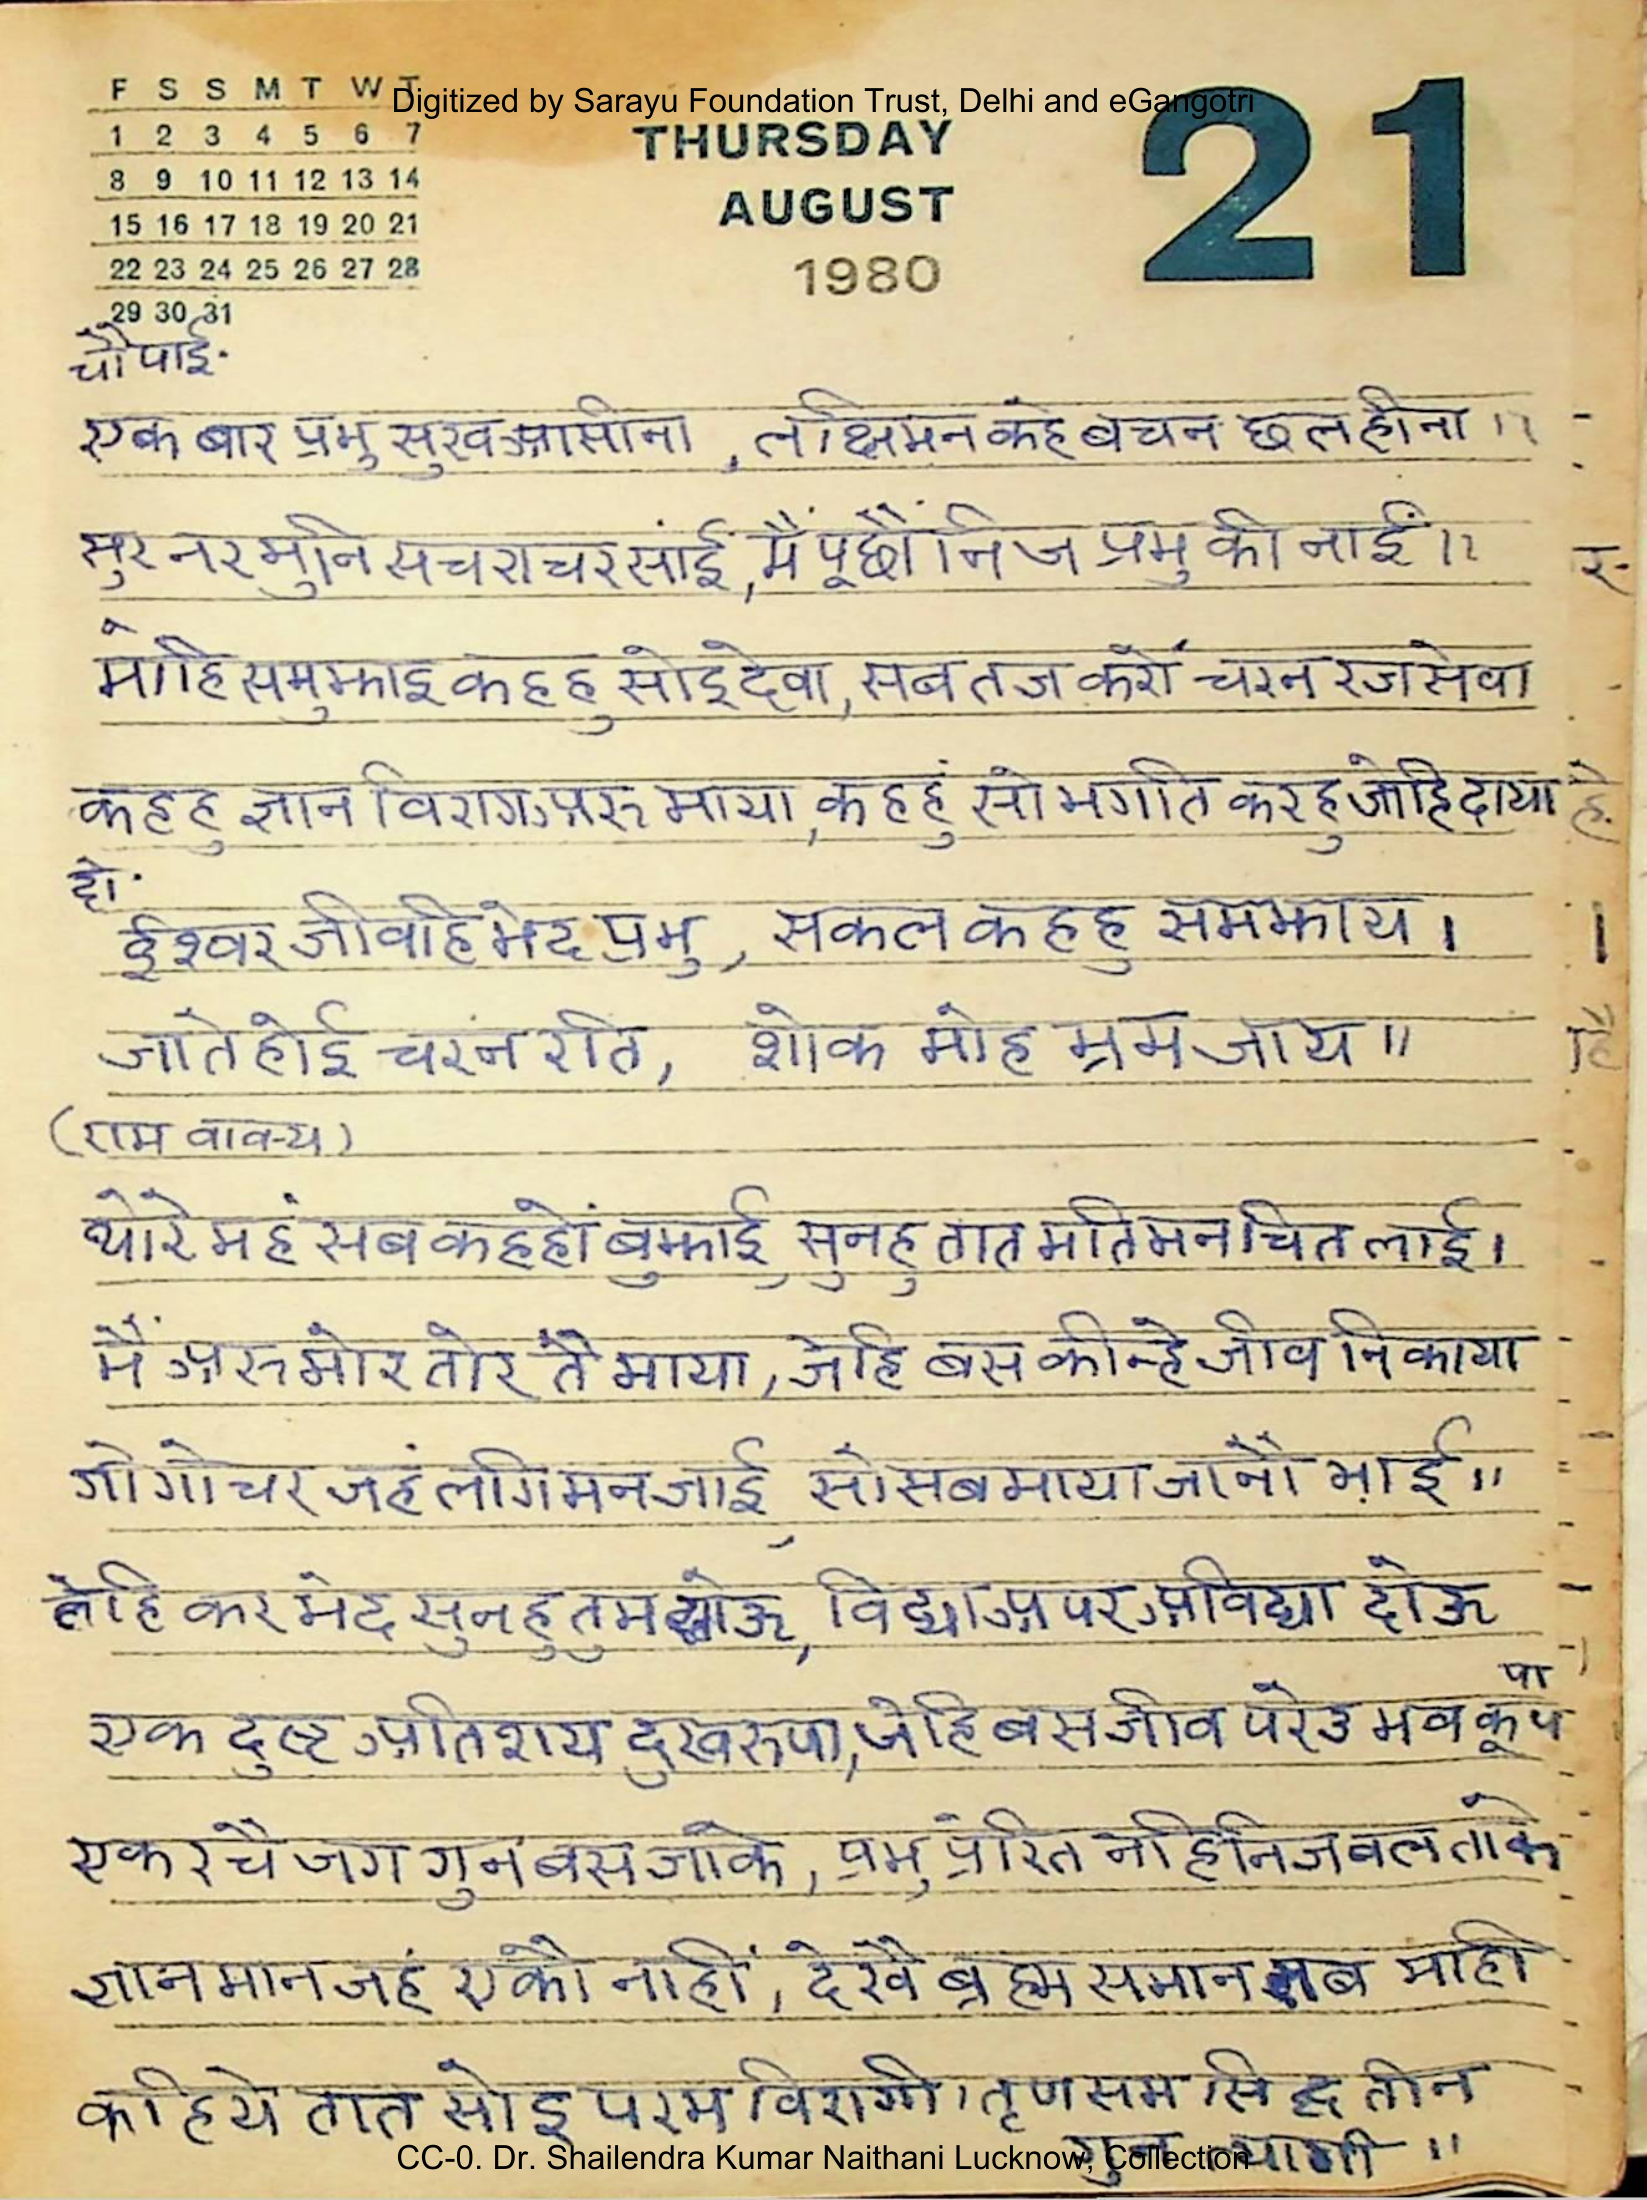 F S S M T W T
Digitized by Sarayu Foundation Trust, Delhi and eGangotri
1 2 3 4 5 6 7
8 9 10 11 12 13 14
15 16 17 18 19 20 21
22 23 24 25 26 27 28
29 30 31
THURSDAY
AUGUST
1980
21
चौपाई.
एक बार प्रभु सुख आसीना, लछिमन कहे बचन छलहीना ॥
सुर नर मुनि सचराचर सांई, मैं पूछौं निज प्रभु की नाईं ॥
मोहि समुझाइ कहहु सोइ देवा, सब तज करौं चरन रज सेवा
कहहु ज्ञान विराग अरु माया, कहहुं सो भगति करहु जेहि दाया
दो.
ईश्वर जीवहि भेद प्रभु, सकल कहहु समझाय ।
जाते होई चरन रति, शोक मोह भ्रम जाय ॥
(राम वाक्य)
थोरे महं सब कहहों बुझाई, सुनहु तात मति मन चित लाई ।
मैं अरु मोर तोर तैं माया, जेहि बस कीन्हे जीव निकाया
गो गोचर जहं लगि मन जाई, सो सब माया जानौ भाई ॥
तेहि कर भेद सुनहु तुम सोऊ, विद्या अपर अविद्या दोऊ
एक दुष्ट अतिशय दुखरूपा, जेहि बस जीव परेउ भव कूप
पा
एक रचै जग गुन बस जाके, प्रभु प्रेरित नहिं निज बल ताके
ज्ञान मान जहं एको नाहीं, देखै ब्रह्म समान सब माही
कहिये तात सोइ परम विरागी । तृण सम सिद्ध तीन
गुन त्यागी ॥
CC-0. Dr. Shailendra Kumar Naithani Lucknow, Collection